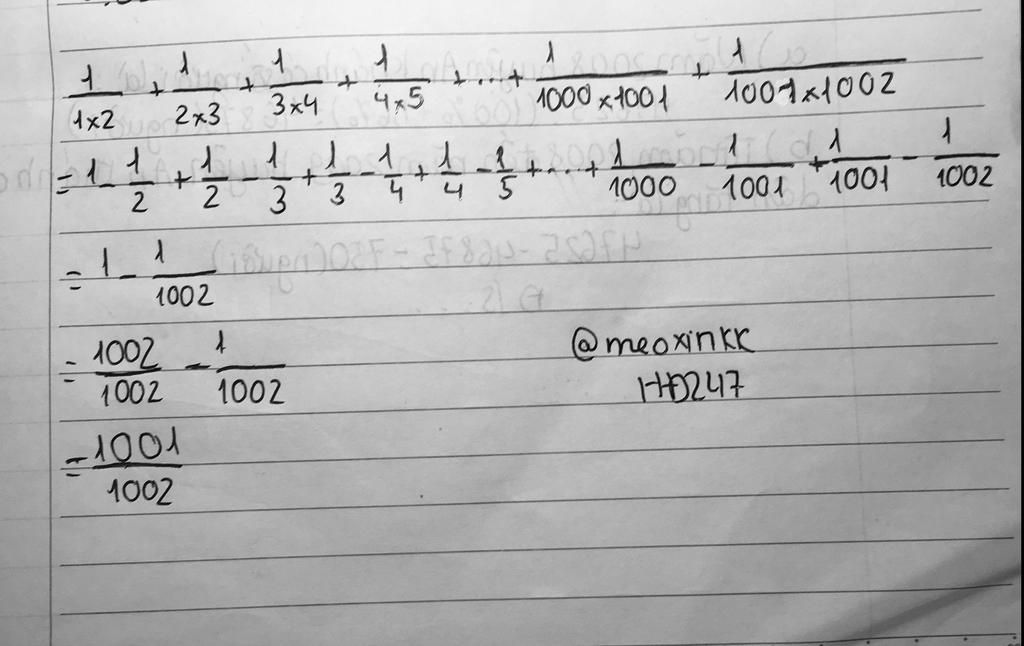 1/1×2 + 1/2×3 + 1/3×4 + 1/4×5 + ... + 1/1000×1001 + 1/1001×1002
= 1 - 1/2 + 1/2 - 1/3 + 1/3 - 1/4 + 1/4 - 1/5 + ... + 1/1000 - 1/1001 + 1/1001 - 1/1002
= 1 - 1/1002
= 1002/1002 - 1/1002
= 1001/1002
@meoxinkk
HĐ247